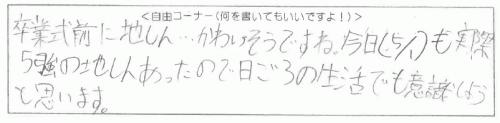 <自由コーナー(何を書いてもいいですよ!)>
卒業式前に地しん…かわいそうですね。今日(5/1)も実際
5強の地しんあったので日ごろの生活でも意識しよう
と思います。